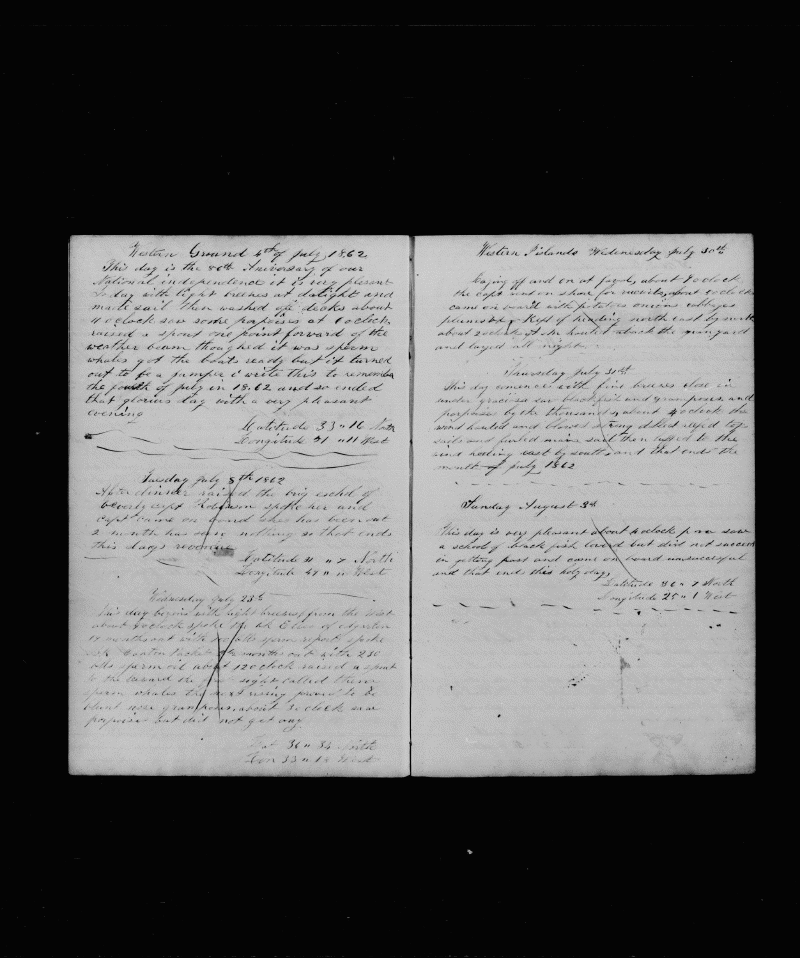 Western Ground 4th of July 1862
This day is the 86th Aniversary of our
National independence it is very plesent
today with light breses at daylight and
made sail then washed off decks about
4 oclock saw some porpoises at 1 oclock
raised a spout one point forward of the
weather beam thoughed it was sperm
whales got the boats ready but it turned
out to be a jumper i write this to remember
the fourth of july in 1862 and so ended
that glorius day with a very plesant
evening
Latitude 33 " 16 North
Longitude 71 " 11 West
Tuesday July 8th 1862
After dinner raised the brig eschol of
beverly capt Robinson spoke her and
capt came on board shes has been out
2 month has seen nothing so that ends
this days
Latitude " 7 North
Longitude " West
Wednesday July 23th
This day begins with light breeses from the West
about oclock spoke the of edgarton
19 months out with bbls sperm report spoke
Packet months out with 230
bbls sperm oil about 12 oclock raised a spout
to the leward the sight called them
sperm whales the next rising proved to be
blunt nose grampuses about 3 oclock saw
porpoises but did not get any
Lat 36 " 34 North
Lon 33 " 18 West
Western Islands Wednesday July 30th
Laying off and on at fayal, about 9 oclock
the capt went on shore for recruits, about 6 oclock
came on board with potatoes onions cabbages
Kept of heading north east by north
about 2 oclock hauled aback the mainyard
and layed all night
Thursday July 31st
This day comences with fine breeses close in
under graciosa saw blackfish and grampuses and
porpoises by the thousands, about 4 oclock the
wind hauled and blowed strong reefed top
sails and furled main sail then luffed to the
wind heading east by south and that ends the
month of July 1862
Sunday August 3d
This day is very pleasant about 4 oclock p m saw
a school of black fish lowerd but did not succeed
in getting fast and came on board unsuccesful
and that ends this holy day
Latitude 36 " 7 North
Longitude 25 " 1 West